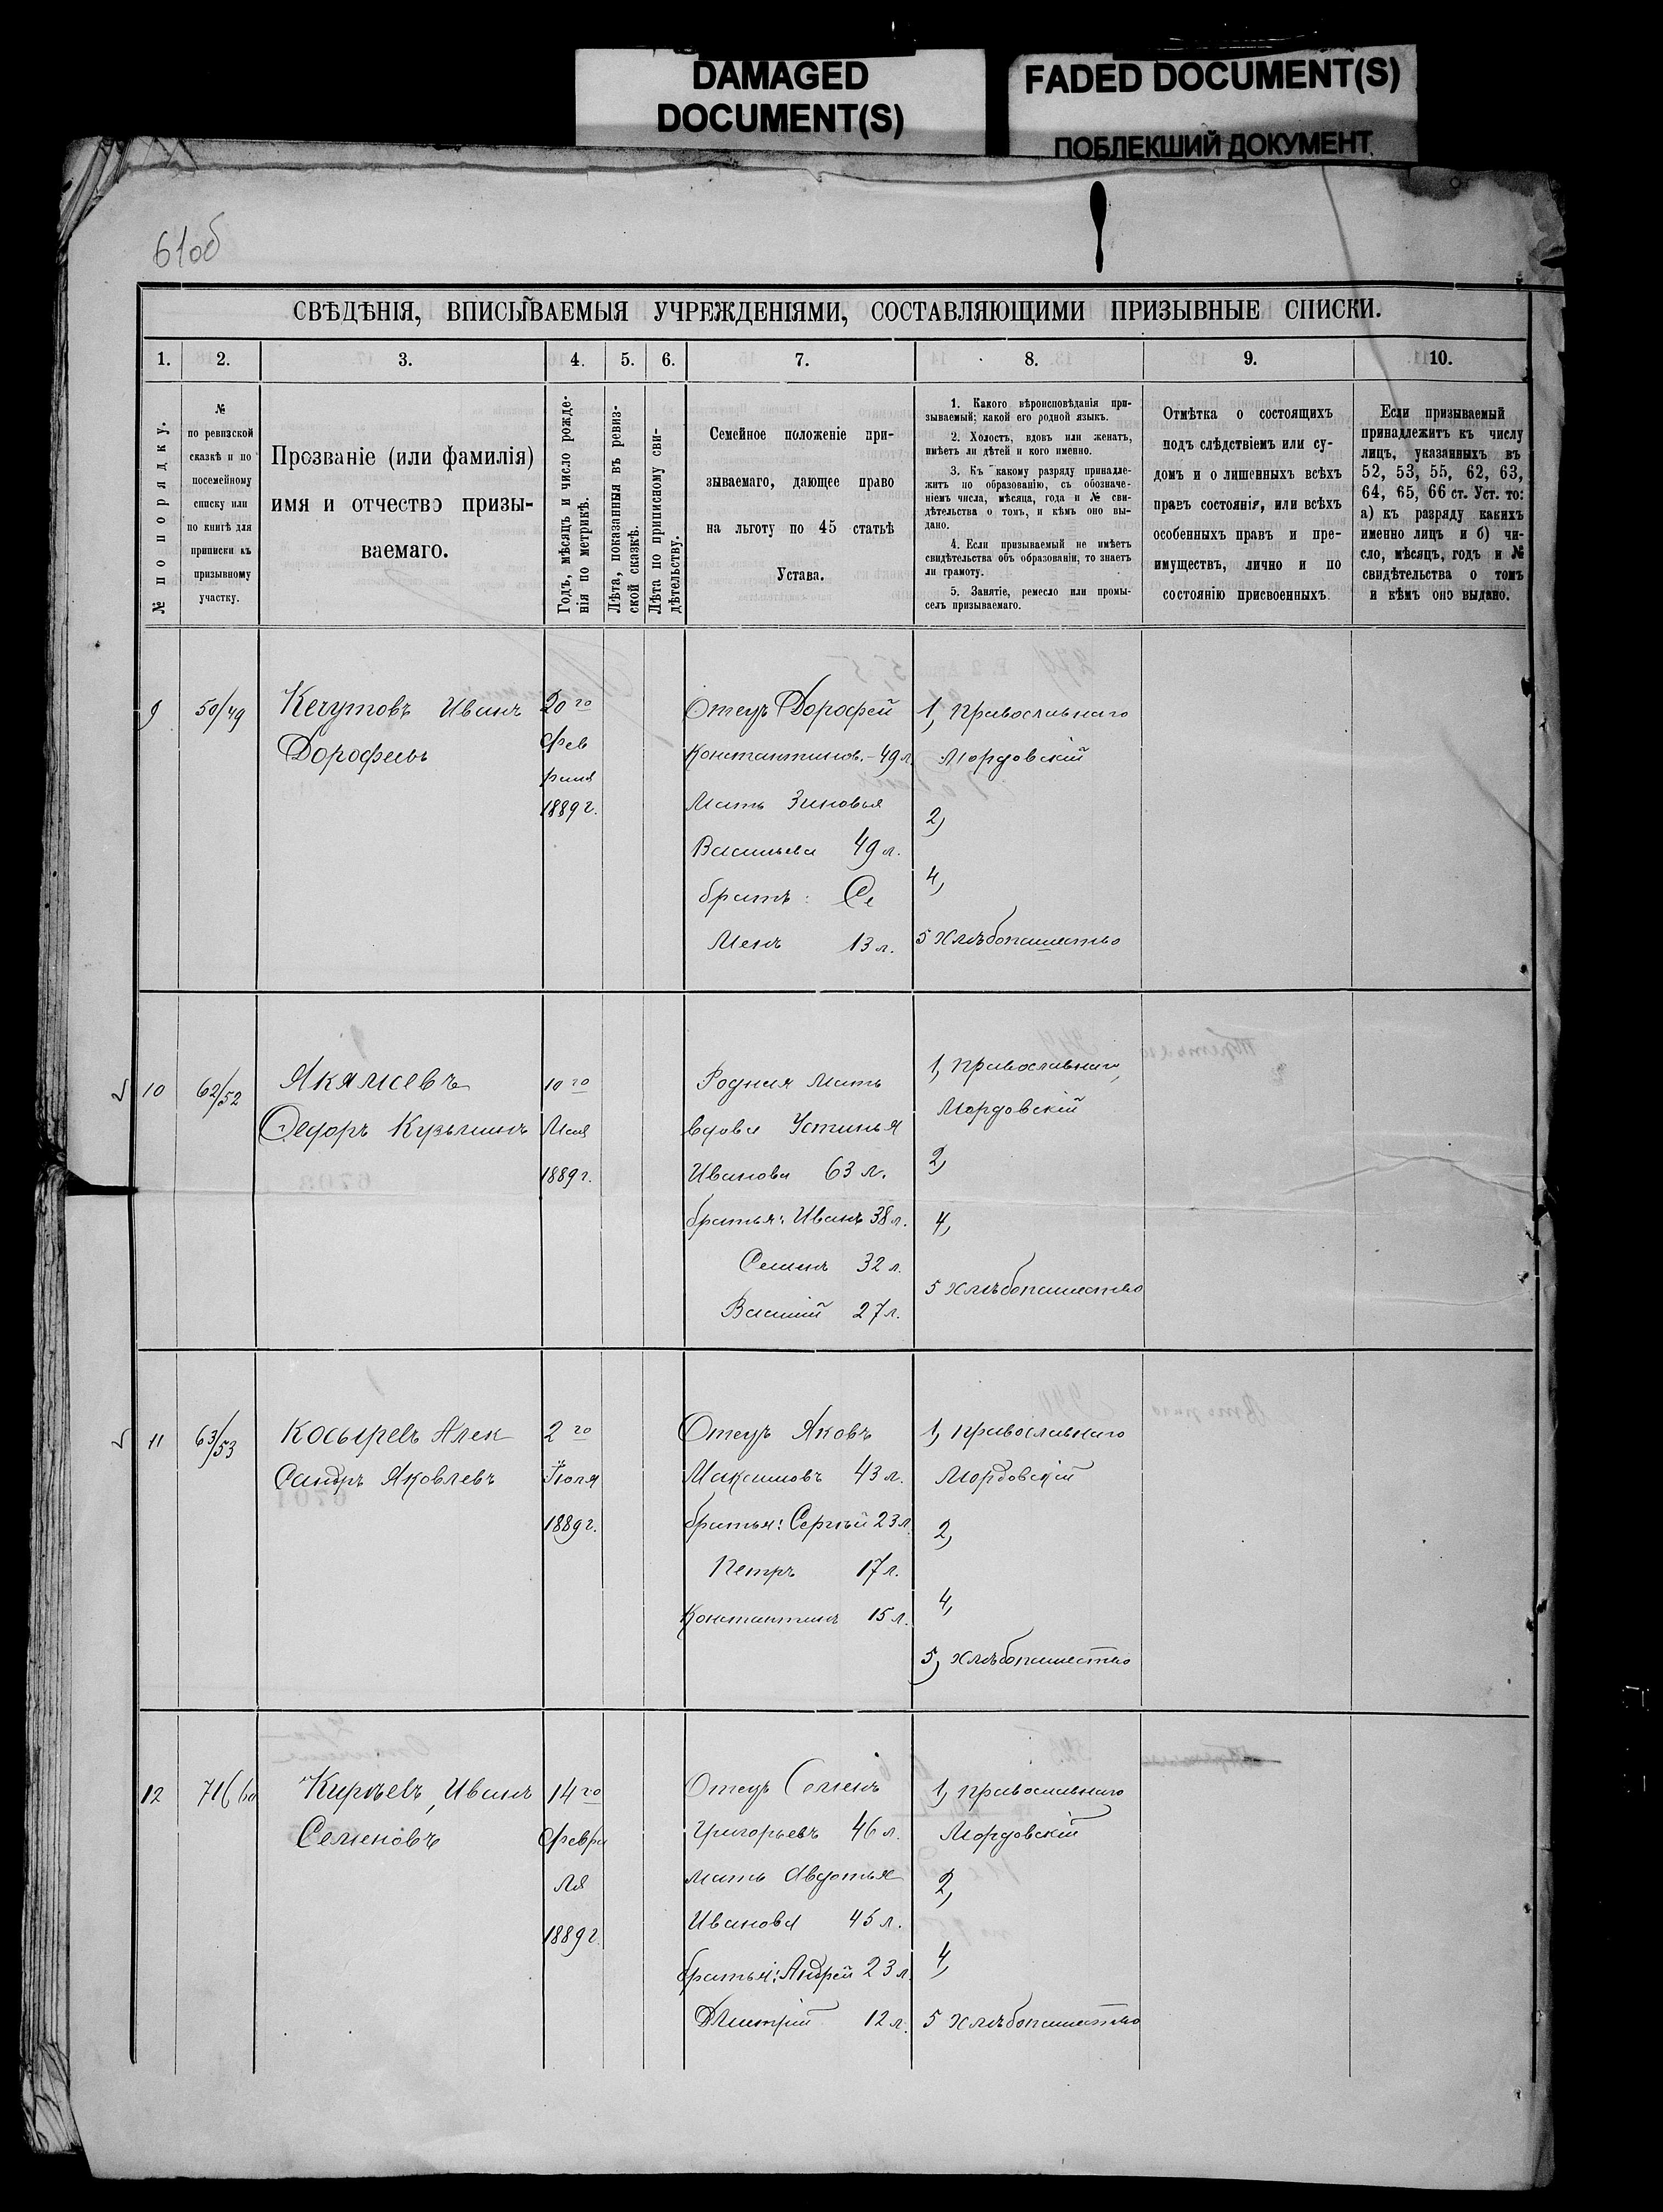 DAMAGED
DOCUMENT(S)
FADED DOCUMENT(S)
ПОБЛЕКШИЙ ДОКУМЕНТ
61об
СВѢДѢНІЯ, ВПИСЫВАЕМЫЯ УЧРЕЖДЕНІЯМИ, СОСТАВЛЯЮЩИМИ ПРИЗЫВНЫЕ СПИСКИ.
1. 2. 3. 4. 5. 6. 7. 8. 9. 10.
№ по порядку.
№
по ревизской
сказкѣ и по
посемейному
списку или
по книгѣ для
приписки къ
призывному
участку.
Прозваніе (или фамилія)
имя и отчество призы-
ваемаго.
Годъ, мѣсяцъ и число рожде-
нія по метрикѣ.
Лѣта, показанныя въ ревиз-
ской сказкѣ.
Лѣта по приписному сви-
дѣтельству.
Семейное положеніе при-
зываемаго, дающее право
на льготу по 45 статьѣ
Устава.
1. Какого вѣроисповѣданія при-
зываемый; какой его родной языкъ.
2. Холостъ, вдовъ или женатъ,
имѣетъ ли дѣтей и кого именно.
3. Къ какому разряду принадле-
житъ по образованію, съ обозначе-
ніемъ числа, мѣсяца, года и № сви-
дѣтельства о томъ, и кѣмъ оно вы-
дано.
4. Если призываемый не имѣетъ
свидѣтельства объ образованіи, то знаетъ
ли грамоту.
5. Занятіе, ремесло или промы-
селъ призываемаго.
Отмѣтка о состоящихъ
подъ слѣдствіемъ или су-
домъ и о лишенныхъ всѣхъ
правъ состоянія, или всѣхъ
особенныхъ правъ и пре-
имуществъ, лично и по
состоянію присвоенныхъ.
Если призываемый
принадлежитъ къ числу
лицъ, указанныхъ въ
52, 53, 55, 62, 63,
64, 65, 66 ст. Уст. то:
а) къ разряду какихъ
именно лицъ и б) чи-
сло, мѣсяцъ, годъ и №
свидѣтельства о томъ
и кѣмъ оно выдано.
9
50/49
Кечутовъ Иванъ
Дорофеевъ
20го
Фев
раля
1889 г.
Отецъ Дорофей
Константинов. - 49 л.
Мать Зиновья
Васильева 49 л.
братъ: Се
менъ 13 л.
1, Православнаго
Мордовскій
2,
4,
5 Хлѣбопашество
10
62/52
Акямсевъ
Ѳедоръ Кузьминъ
10го
Мая
1889 г.
Родная мать
вдова Устинья
Иванова 63 л.
братья: Иванъ 38 л.
Семенъ 32 л.
Василій 27 л.
1, Православнаго,
Мордовскій
2,
4,
5 Хлѣбопашество
11
63/53
Косыревъ Алек
сандръ Яковлевъ
2го
Іюля
1889 г.
Отецъ Яковъ
Максимовъ 43 л.
братья: Сергѣй 23 л.
Петръ 17 л.
Константинъ 15 л.
1, Православнаго
Мордовскій
2,
4,
5, Хлѣбопашество
12
71/60
Кирѣевъ, Иванъ
Семеновъ
14го
Февра
ля
1889 г.
Отецъ Семенъ
Григорьевъ 46 л.
мать Авдотья
Иванова 45 л.
братья: Андрей 23 л.
Дмитрій 12 л.
1, Православнаго
Мордовскій
2,
4,
5 Хлѣбопашество